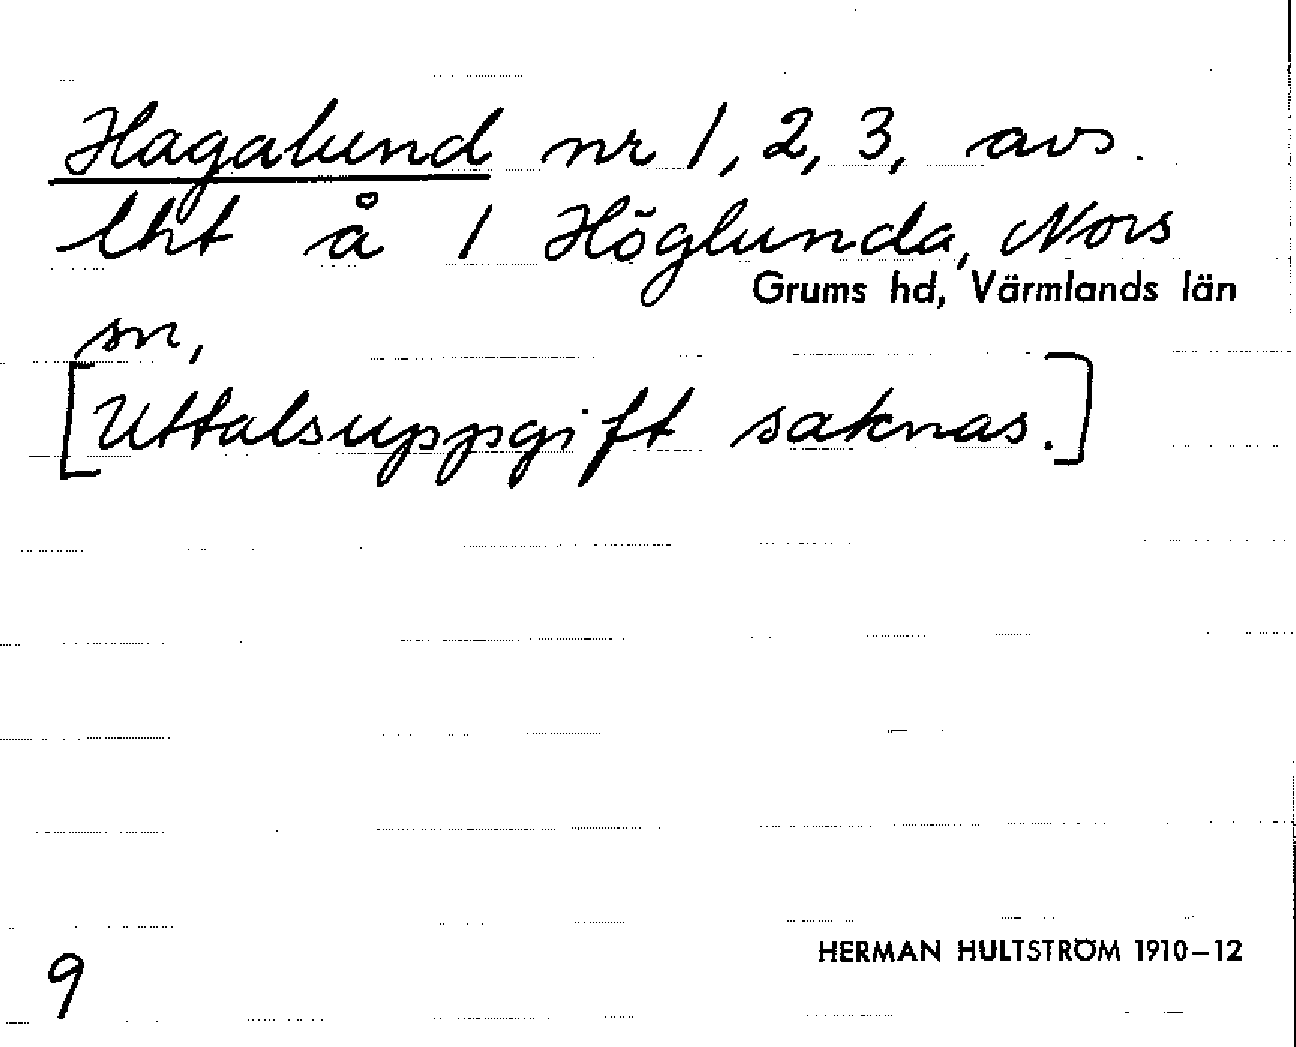 Hagalund nr 1, 2, 3, avs.
lht å 1 Höglunda, Nors
Grums hd, Värmlands län
sn,
[Uttalsuppgift saknas.]
HERMAN HULTSTRÖM 1910–12
9